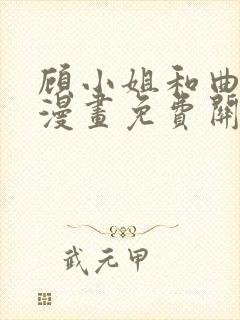 顾小姐和曲
漫畫免費開
武元甲